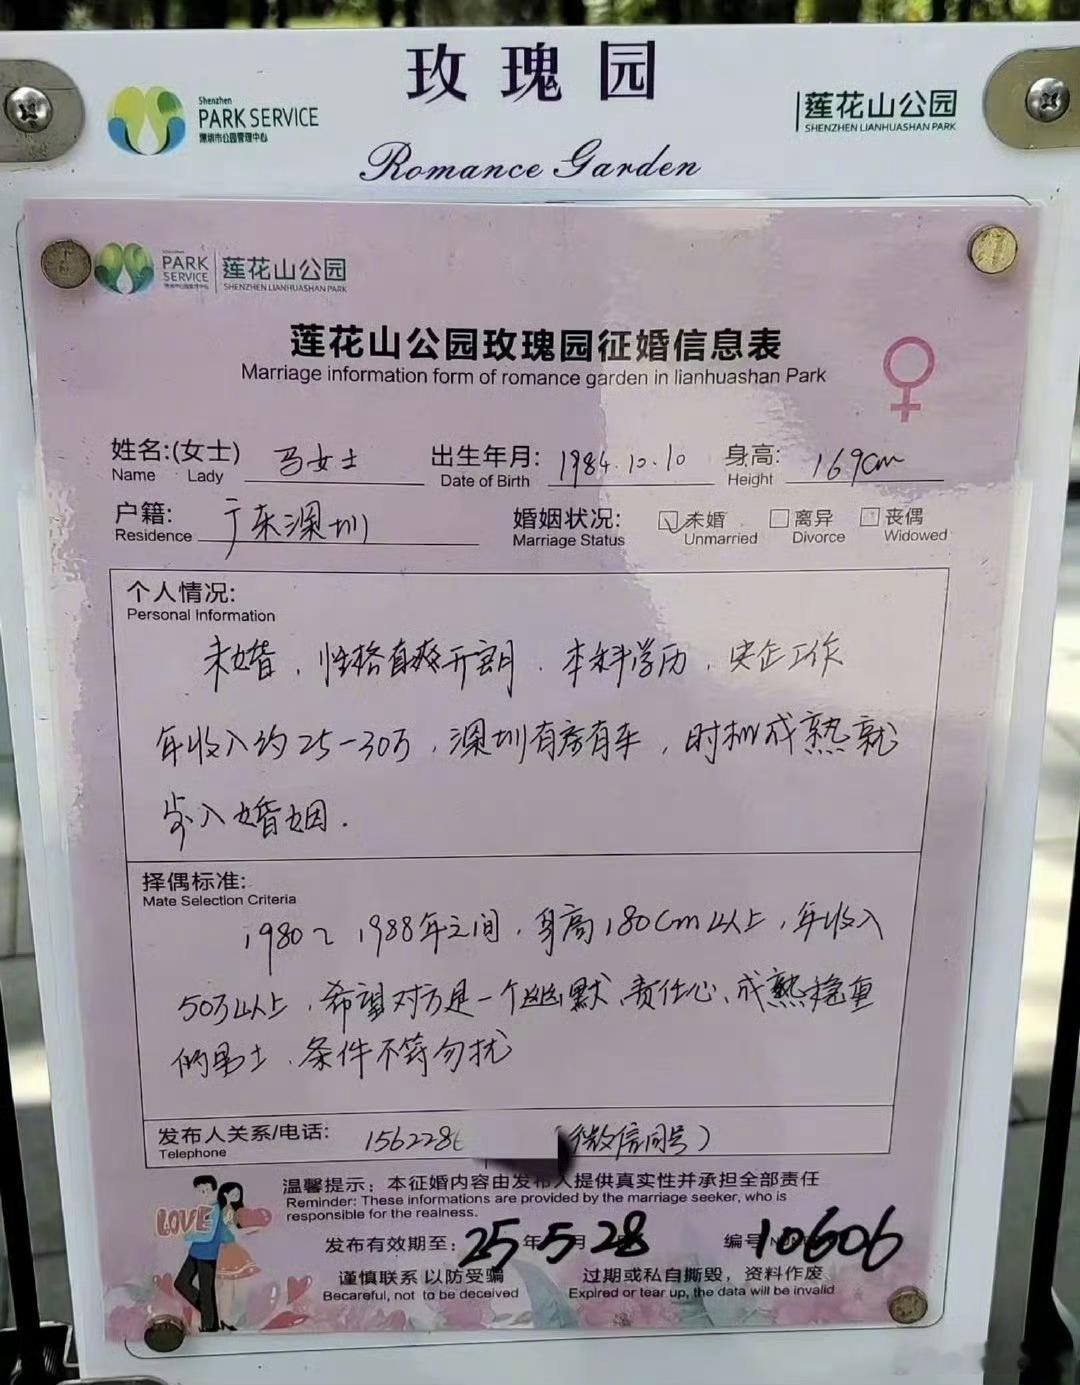 玫瑰园
Shenzhen
PARK SERVICE
深圳市公园管理中心
莲花山公园
SHENZHEN LIANHUASHAN PARK
Romance Garden
PARK
SERVICE
莲花山公园
SHENZHEN LIANHUASHAN PARK
莲花山公园玫瑰园征婚信息表
Marriage information form of romance garden in lianhuashan Park
姓名:(女士) 马女士 出生年月: 1984.10.10 身高: 169cm
Name Lady Date of Birth Height
户籍: 广东深圳 婚姻状况: 未婚 离异 丧偶
Residence Marriage Status Unmarried Divorce Widowed
个人情况:
Personal Information
未婚，性格直爽开朗，本科学历，央企工作
年收入约25-30万，深圳有房有车，时机成熟就
步入婚姻.
择偶标准:
Mate Selection Criteria
1980~1988年之间，身高180cm以上，年收入
50万以上，希望对方是一个幽默、责任心、成熟稳重
的男士、条件不符勿扰
发布人关系/电话: 1562286 (微信同号)
Telephone
温馨提示：本征婚内容由发布人提供真实性并承担全部责任
Reminder: These informations are provided by the marriage seeker, who is
responsible for the realness.
LOVE
发布有效期至: 25年5月28 编号 10606
谨慎联系 以防受骗 过期或私自撕毁，资料作废
Becareful, not to be deceived Expired or tear up, the data will be invalid